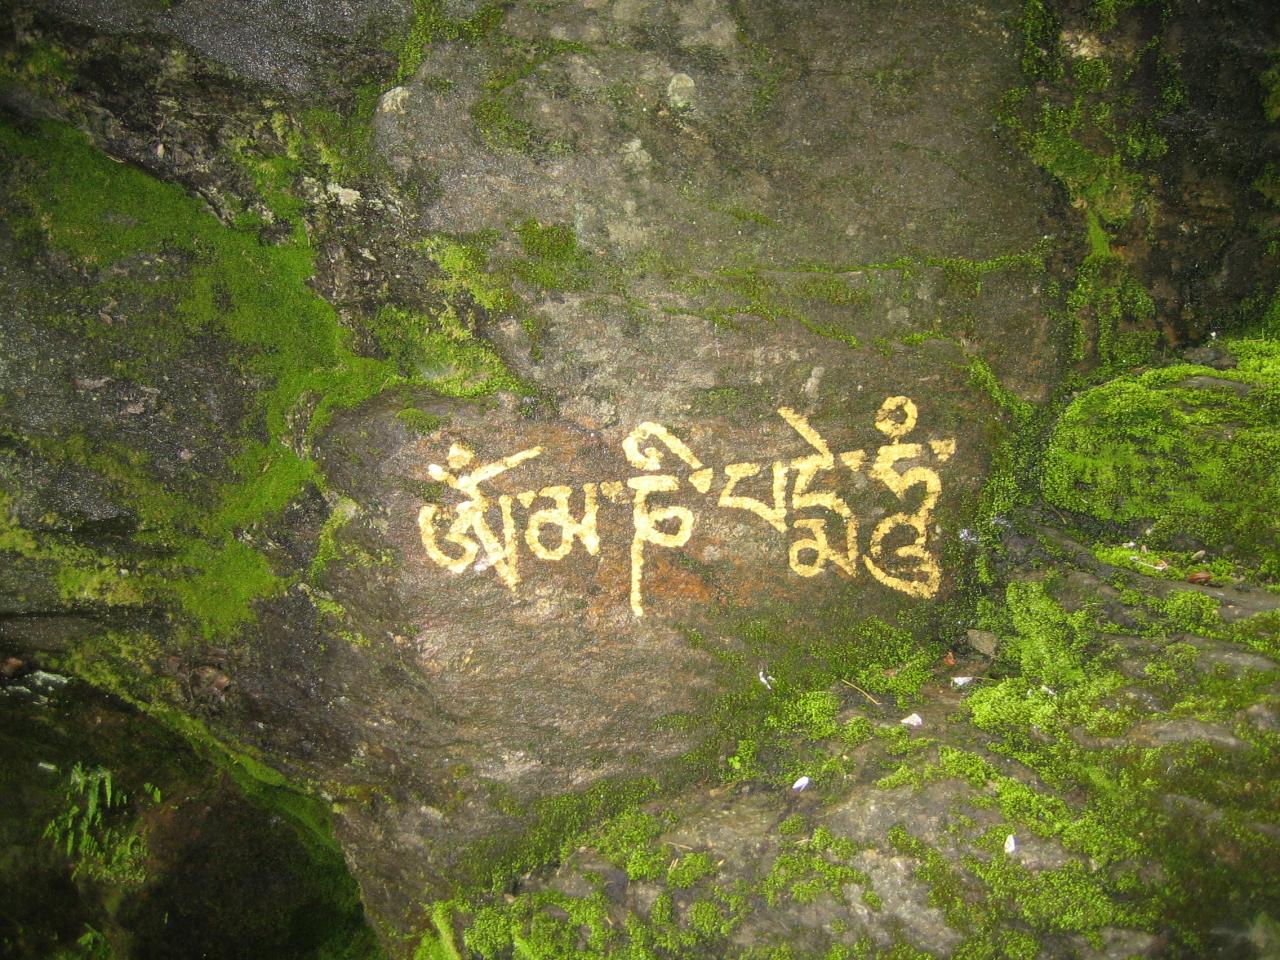 ཨོཾ་མ་ཎི་པདྨེ་ཧཱུཾ་